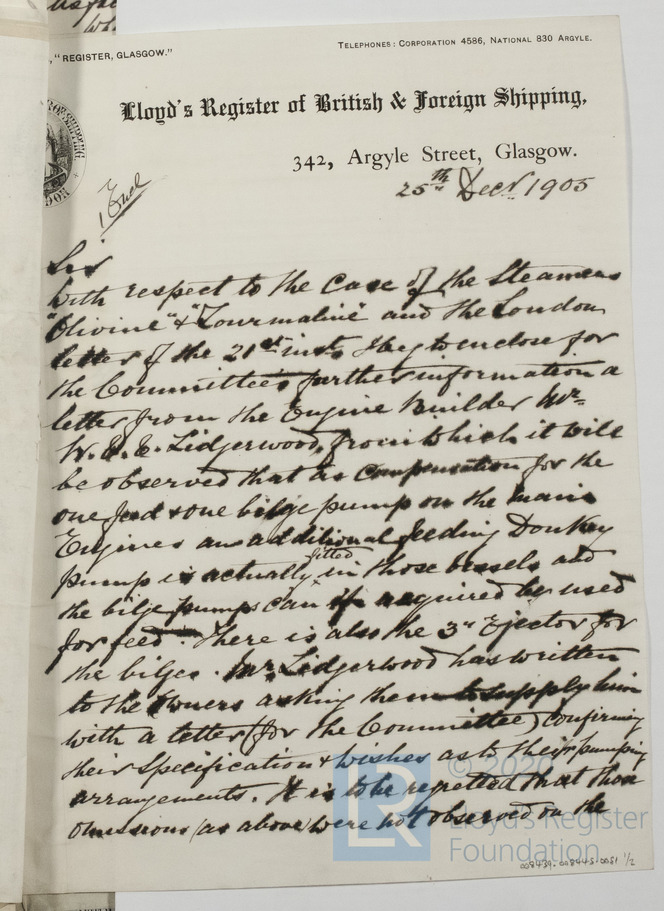 , "REGISTER, GLASGOW."
TELEPHONES: CORPORATION 4586, NATIONAL 830 ARGYLE.
Lloyd's Register of British & Foreign Shipping,
342, Argyle Street, Glasgow.
25th Decr. 1905
1 Encl
Sir
With respect to the Case of the Steamers
"Olivine" & "Tourmaline" and the London
letter of the 21st inst. I beg to enclose for
the Committee's further information a
letter from the Engine Builder Mr.
W. A. C. Lidgerwood, from which it will
be observed that as compensation for the
one feed & one bilge pump on the main
Engines an additional feeding Donkey
pump is actually fitted in those vessels and
the bilge pumps can if required be used
for feed. There is also the 3" Ejector for
the bilges. Mr. Lidgerwood has written
to the Owners asking them to supply him
with a letter (for the Committee) confirming
their Specification & wishes as to their pumping
arrangements. It is to be regretted that those
omissions (as above) were not observed on the
© 2020
LR
Lloyd's Register
Foundation
008439-008443-0051 1/2